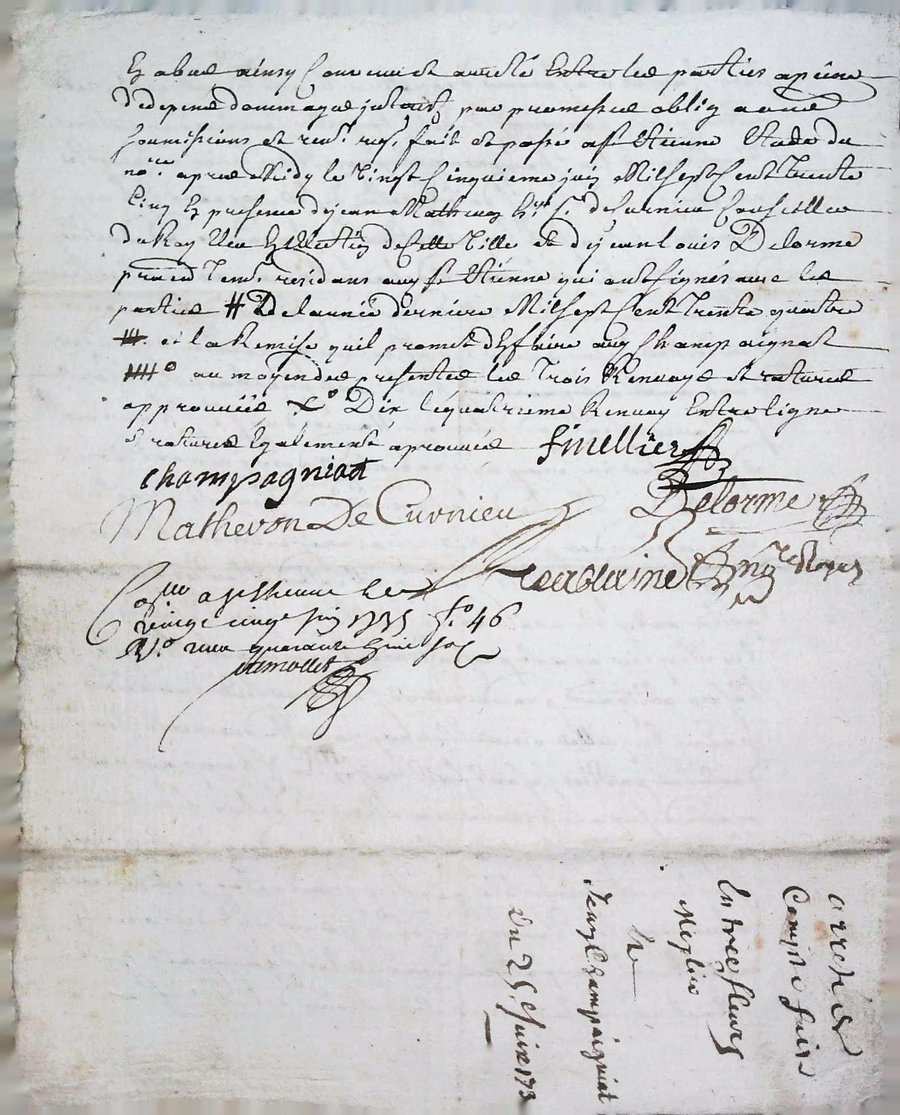 Et a été ainsy Convenu et arresté Entre les parties a peine
de depens dommages par promesses oblig
soumissions et ren. fait et passé a St Etienne Etude du
nore apres Midy le Vingt Cinquieme juin Mil sept Cent trente
Cinq En presence de jean Matheron Sr de Curnieu Conseiller
du Roy Eleu En Election de Cette Ville et de jean Louis Delorme
praticien residans audit St Etienne qui ont signés avec les
parties # De lannée derniere Mil sept Cent trente quatre
et la Remise quil promet den faire aud Champaignat
au moyen des presentes les Trois Renvoys et ratures
approuvées Dix le quatrieme Renvoy Entre ligne
et ratures Egalement aprouvées
fmellier
Champagniat
Matheron De Curnieu
Delorme
nore Royal
a st Etienne le
vingt cinq juin 1735 fo. 46
Rd. quarante huit sols
arresté de
Compte fait
Entre fleury
et
jean Champaignat
du 25e juin 173